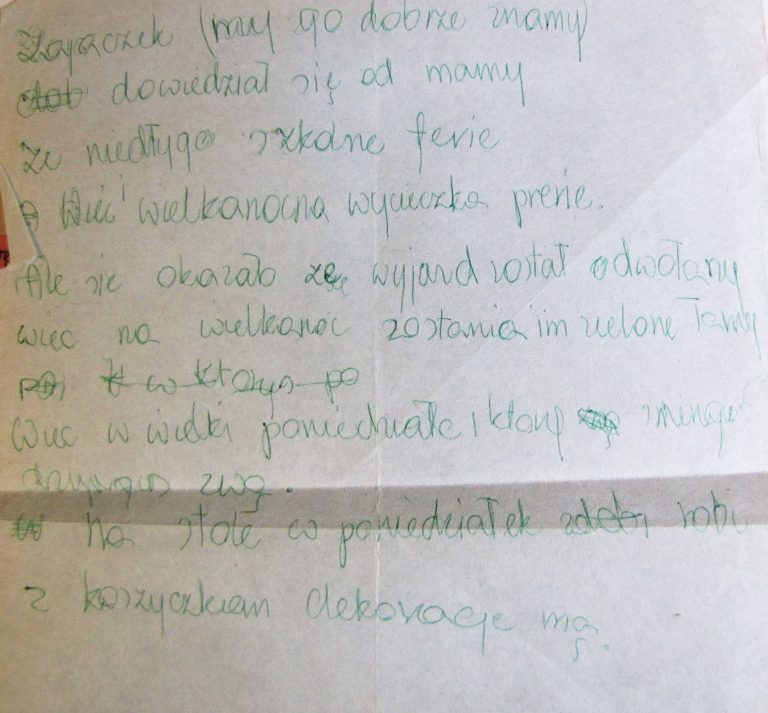 Zajączek (my go dobrze znamy)
dowiedział się od mamy
że niedługo szkolne ferie
Więc i wielkanocna wycieczka prerie.
Ale sie okazało że wyjazd został odwołany
więc na wielkanoc zostania im zielone Tamy
w którys po
Więc w wielki poniedziałek który
zwą.
Na stole w poniedziałek robi
z koszyczkiem dekoracje mą.